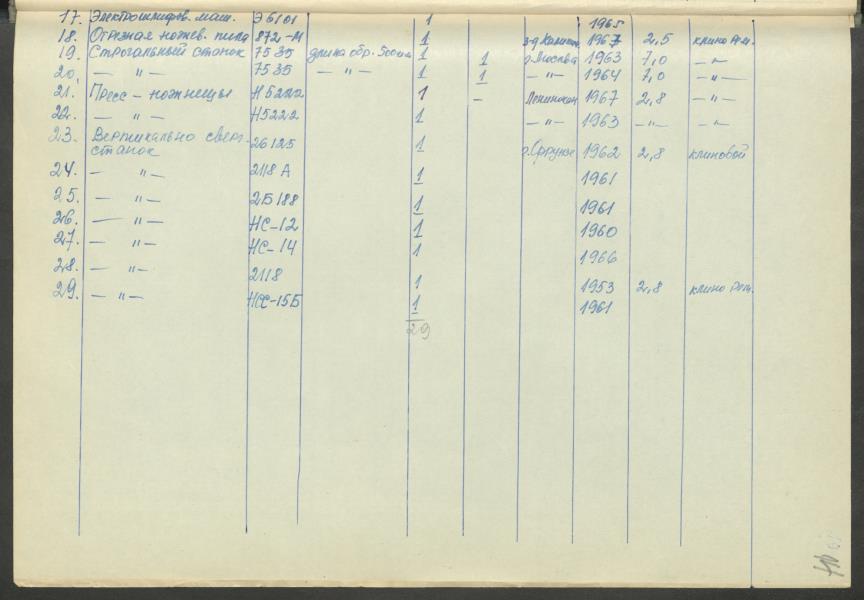 17. Электрошлифов. маш. Э 6101 1 1965
18. Отрезная ножев. пила 872-М 1 з-д 1967 2,5 клино рем.
19. Строгальный станок 7535 длина обр. 500мм 1 1 г. Москва 1963 7,0 — " —
20. — " — 7535 — " — 1 1 — " — 1964 7,0 — " —
21. Пресс-ножницы Н5222 1 — Ленинакан 1967 2,8 — " —
22. — " — Н5222 1 — " — 1963 — " — — " —
23. Вертикально сверл.
станок 2б125 1 г. Фрунзе 1962 2,8 клиновой
24. — " — 2118 А 1 1961
25. — " — 2Б188 1 1961
26. — " — НС-12 1 1960
27. — " — НС-14 1 1966
28. — " — 2118 1 1953 2,8 клино рем.
29. — " — НСС-15Б 1 1961
29